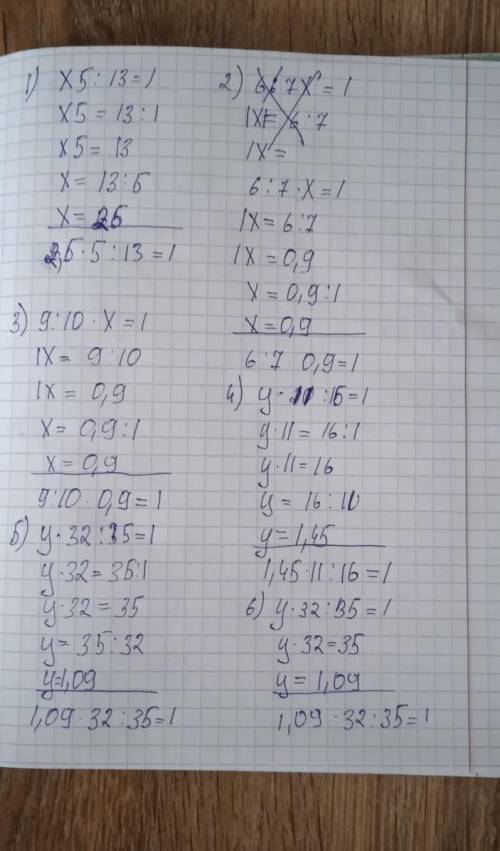 1) x5:13=1
x5=13:1
x5=13
x=13:5
x=2,6
2,6·5:13=1
2) 6:7x=1
1x=6:7
1x=
6:7·x=1
1x=6:7
1x=0,9
x=0,9:1
x=0,9
6:7·0,9=1
3) 9:10·x=1
1x=9:10
1x=0,9
x=0,9:1
x=0,9
9:10·0,9=1
4) y·11:16=1
y·11=16:1
y·11=16
y=16:11
y=1,45
1,45·11:16=1
5) y·32:35=1
y·32=35:1
y·32=35
y=35:32
y=1,09
1,09·32:35=1
6) y·32:35=1
y·32=35
y=1,09
1,09·32:35=1